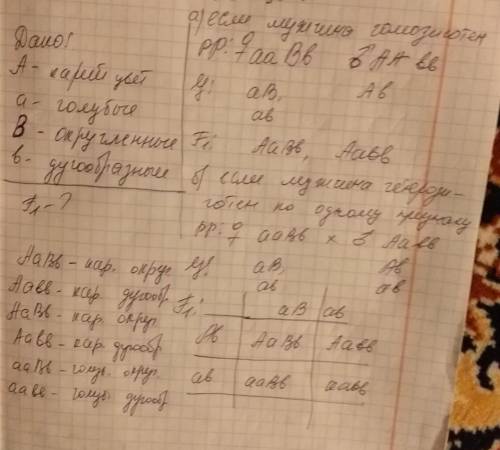 Дано!
А - карий цвет
а - голубые
В - округленные
в - дугообразные
F₁ - ?
АаВв - кар. округ.
Аавв - кар. дугообр.
АаВв - кар. округ.
Аавв - кар. дугообр.
ааВв - голуб. округ.
аавв - голуб. дугообр.
а) если мужчина гомозиготен
РР: ♀ ааВв ♂ АА вв
У: аВ, Ав
ав
F₁: АаВв, Аавв
б) если мужчина гетерози-
готен по одному признаку
РР: ♀ ааВв х ♂ Аавв
У: аВ, Ав
ав ав
F₁: аВ ав
Ав АаВв Аавв
ав ааВв аавв